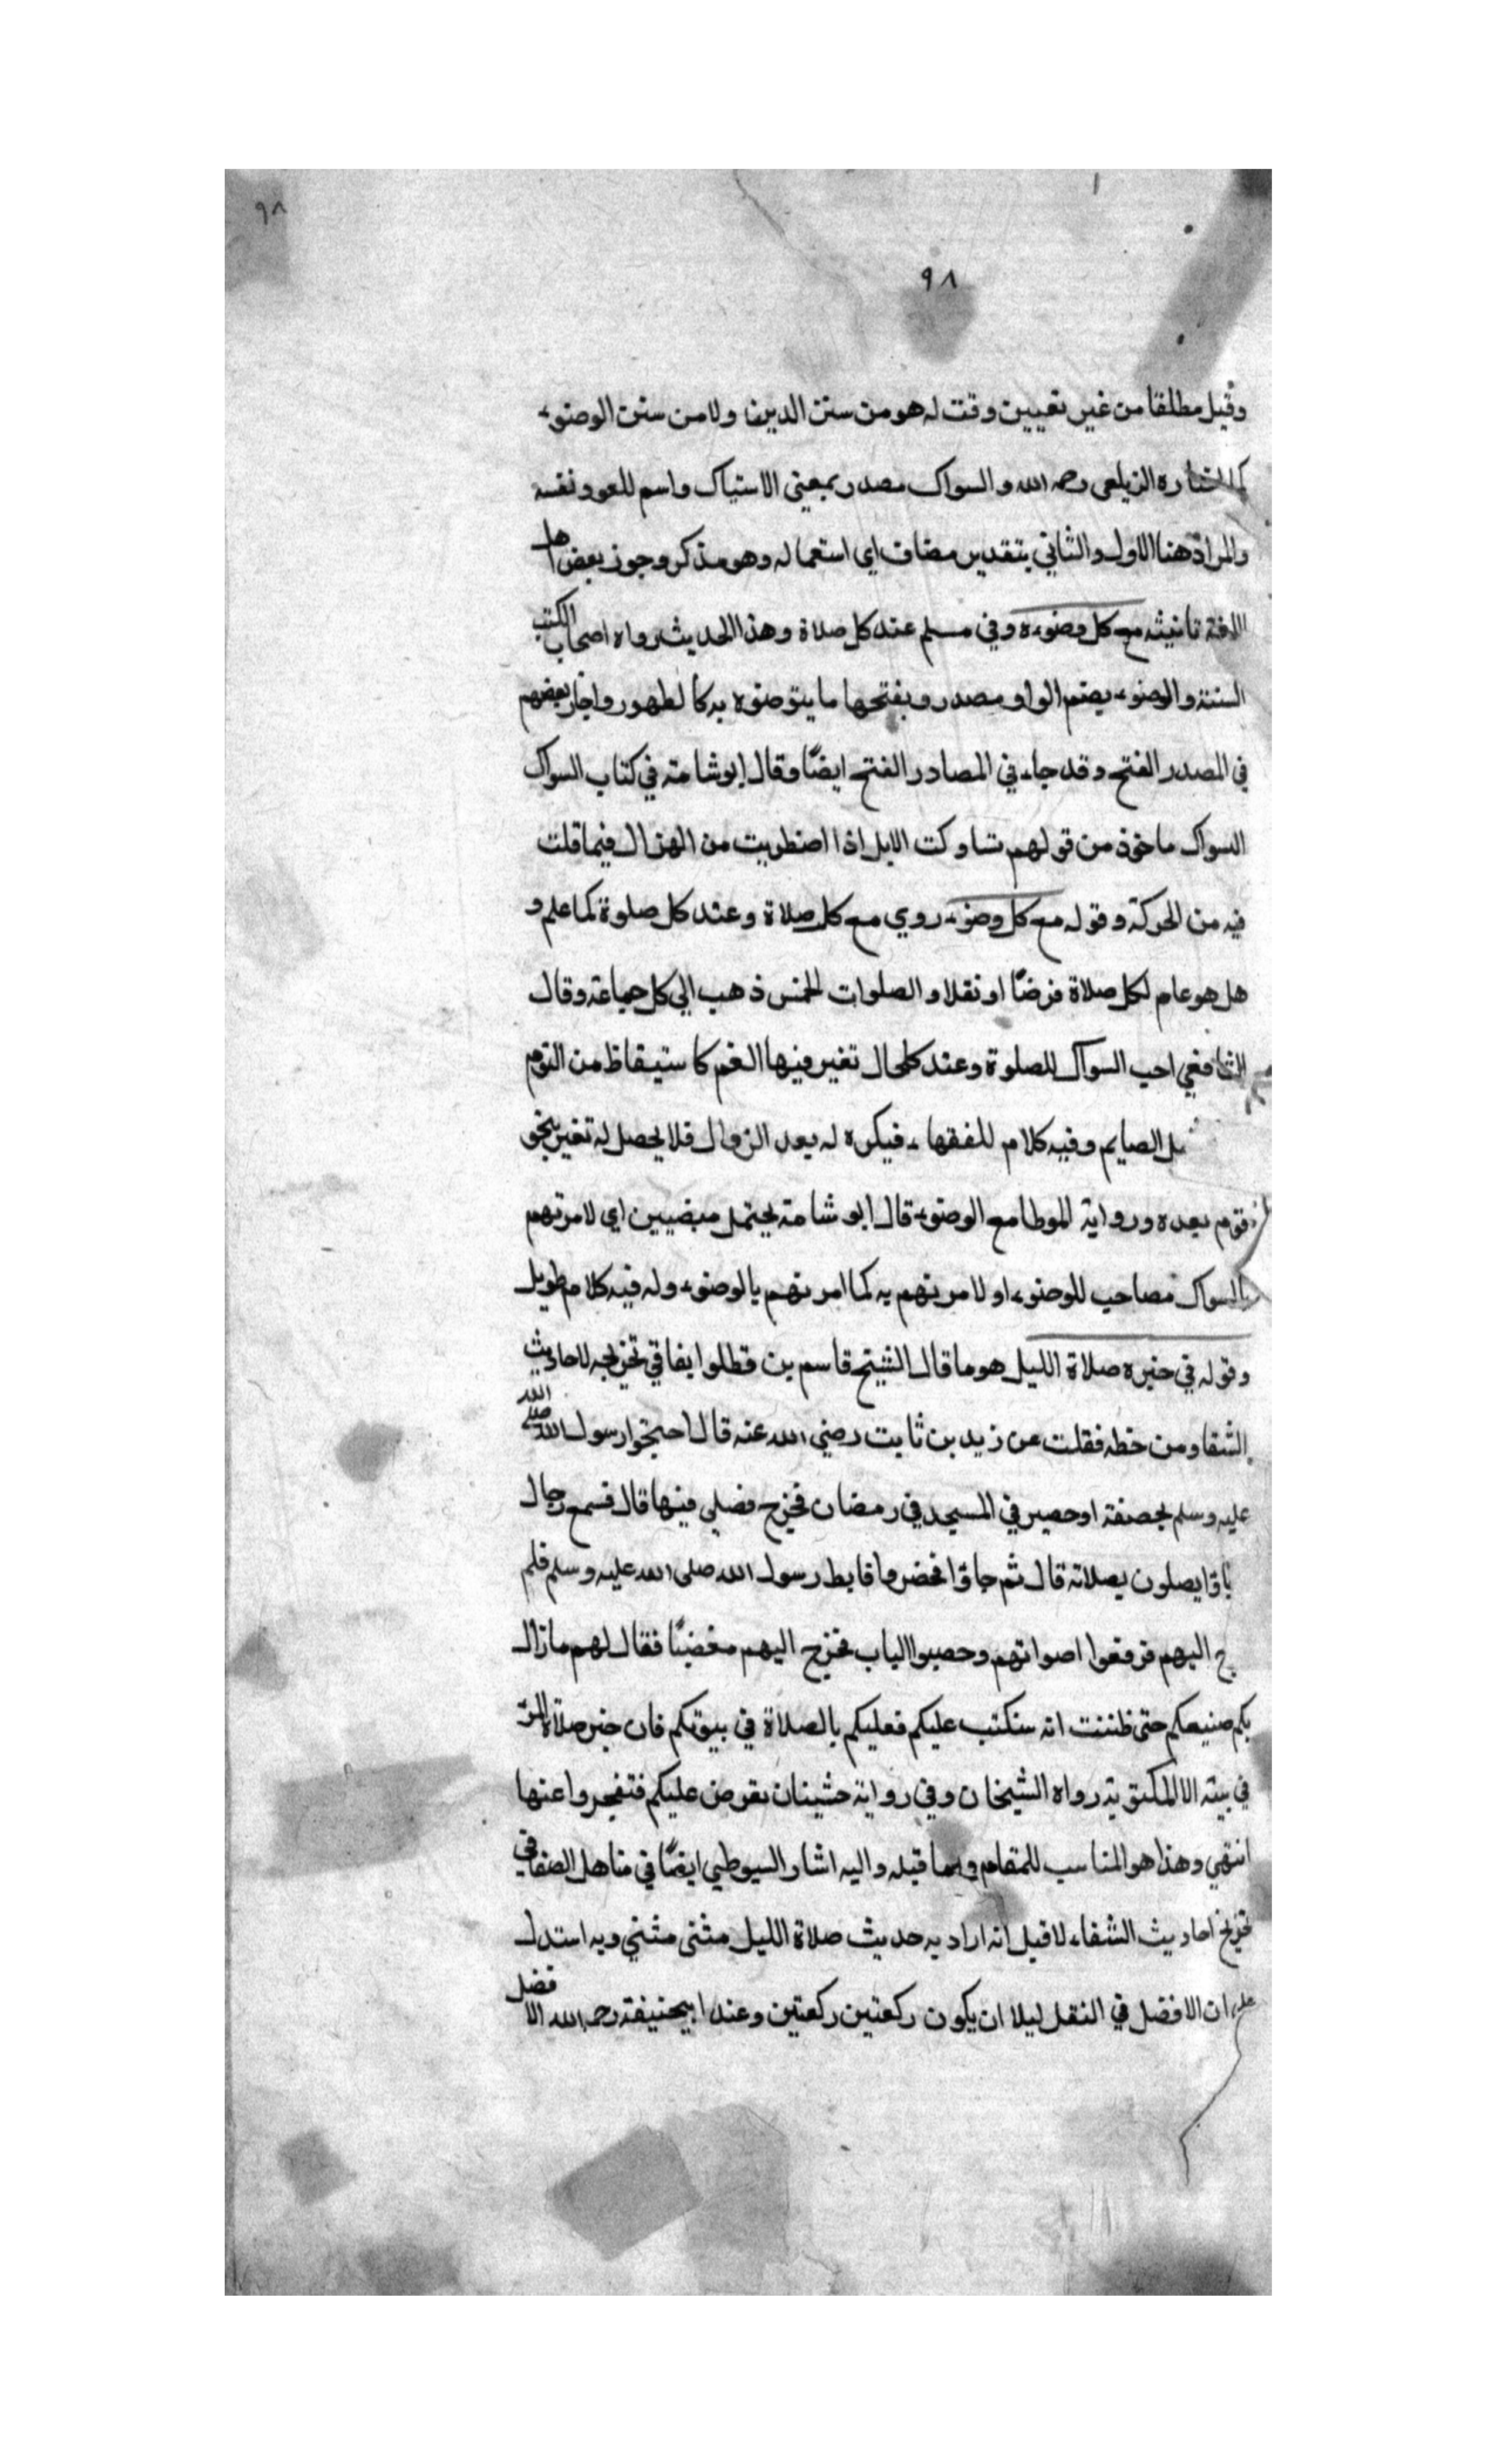 ٩٨
٩٨
وقيل مطلقا من غير تعيين وقت له هو من سنن الدين ولا من سنن الوضوء
كما اختاره الزيلعى رحمه الله والسواك مصدر بمعنى الاستياك واسم للعود نفسه
والمراد هنا الاول والثاني بتقدير مضاف اى استعماله وهو مذكر وجوز بعض اهل
اللغة تانيثه مع كل وضوء وفي مسلم عند كل صلاة وهذا الحديث رواه اصحاب الكتب
الستة والوضوء بضم الواو مصدر وبفتحها ما يتوضوء به كالطهور واجاز بعضهم
في المصدر الفتح وقد جاء في المصادر الفتح ايضًا وقال ابو شامة في كتاب السواك
السواك ماخوذ من قولهم تساوكت الابل اذا اضطربت من الهزال فيما قلت
فيه من الحركة وقوله مع كل وضوء روي مع كل صلاة وعند كل صلوة كما علم و
هل هو عام لكل صلاة فرضًا او نفلا والصلوات الخمس ذهب الي كل جماعة وقال
الشافعي احب السواك للصلوة وعند كلحال تغير فيها الفم كاستيقاظ من النوم
الصايم وفيه كلام للفقهاء فيكره له بعد الزوال فلا يحصل له تغير بنحو
قوم بعده ورواية الموطا مع الوضوء قال ابو شامة يحتمل معنيين اي لامرتهم
بالسواك مصاحب للوضوء او لامرتهم به كما امرتهم بالوضوء وله فيه كلام طويل
وقوله في خيره صلاة الليل هو ما قال الشيخ قاسم بن قطلوا بغا في تخريجه لاحاديث
الشفا ومن خطه نقلت عن زيد بن ثابت رضي الله عنه قال احتجر رسول الله صلى الله
عليه وسلم بخصفة او حصير في المسجد في رمضان فخرج فصلى فيها قال فسمع رجال
باقا يصلون بصلاته قال ثم جاؤا فحضروا فابط رسول الله صلى الله عليه وسلم فلم
ج اليهم فرفعوا اصواتهم وحصبوا الباب فخرج اليهم مغضبًا فقال لهم مازال
بكم صنيعكم حتى ظننت انه ستكتب عليكم فعليكم بالصلاة في بيوتكم فان خير صلاة المرء
في بيته الا المكتوبة رواه الشيخان وفي رواية خشيت ان تفرض عليكم فتعجزوا عنها
انتهي وهذا هو المناسب للمقام وبما قبله واليه اشار السيوطي ايضًا في مناهل الصفا في
تخريج احاديث الشفاء لا قيل انه اراد به حديث صلاة الليل مثنى مثني وبه استدل
على ان الافضل في النفل ليلا ان يكون ركعتين ركعتين وعند ابيحنيفة رحمه الله الافضل